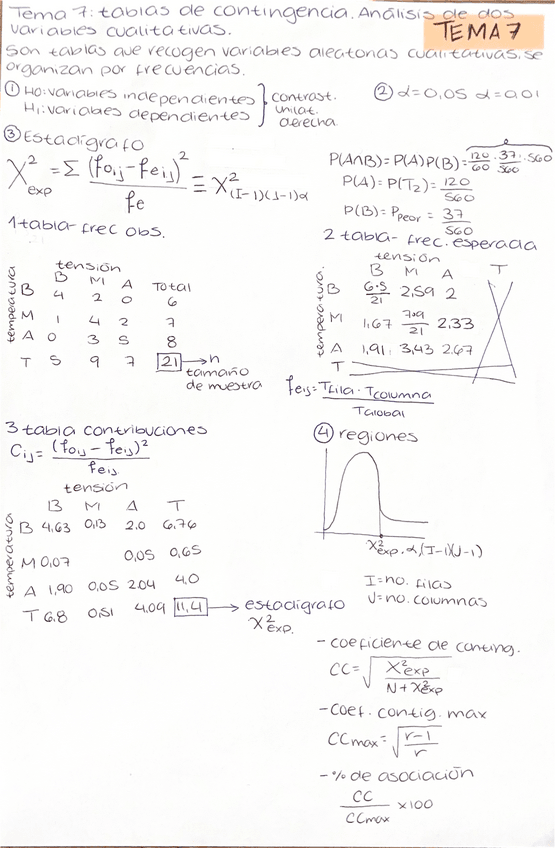 Tema 7: tablas de contingencia. Análisis de dos
variables cualitativas.
TEMA 7
Son tablas que recogen variables aleatorias cualitativas, se
organizan por frecuencias.
① H0: variables independientes
H1: variables dependientes
contrast.
unilat.
derecha
② α=0,05 α=0,01
③ Estadígrafo
X²exp = Σ (foij - feij)² / fe ≡ X²(I-1)(J-1)α
P(A∩B) = P(A)P(B) = 120/60 · 37/560 · 560
P(A) = P(T2) = 120/560
P(B) = Ppeor = 37/560
1 tabla - frec obs.
tensión
temperatura
B M A Total
B 4 2 0 6
M 1 4 2 7
A 0 3 5 8
T 5 9 7 21 → n
tamaño
de muestra
2 tabla - frec. esperada
tensión
temperatura.
B M A T
B 6·5/21 2,59 2
M 1,67 7·9/21 2,33
A 1,91 3,43 2,67
T
feij = Tfila · Tcolumna / Tglobal
3 tabla contribuciones
Cij = (foij - feij)² / feij
tensión
temperatura
B M A T
B 4,63 0,13 2,0 6,76
M 0,07 0,05 0,65
A 1,90 0,05 2,04 4,0
T 6,8 0,51 4,09 11,4 → estadígrafo
X²exp.
④ regiones
X²exp, α, (I-1)(J-1)
I = no. filas
J = no. columnas
- coeficiente de conting.
CC = √(X²exp / N + X²exp)
- Coef. contig. max
CCmax = √(r-1 / r)
- % de asociación
CC / CCmax x100